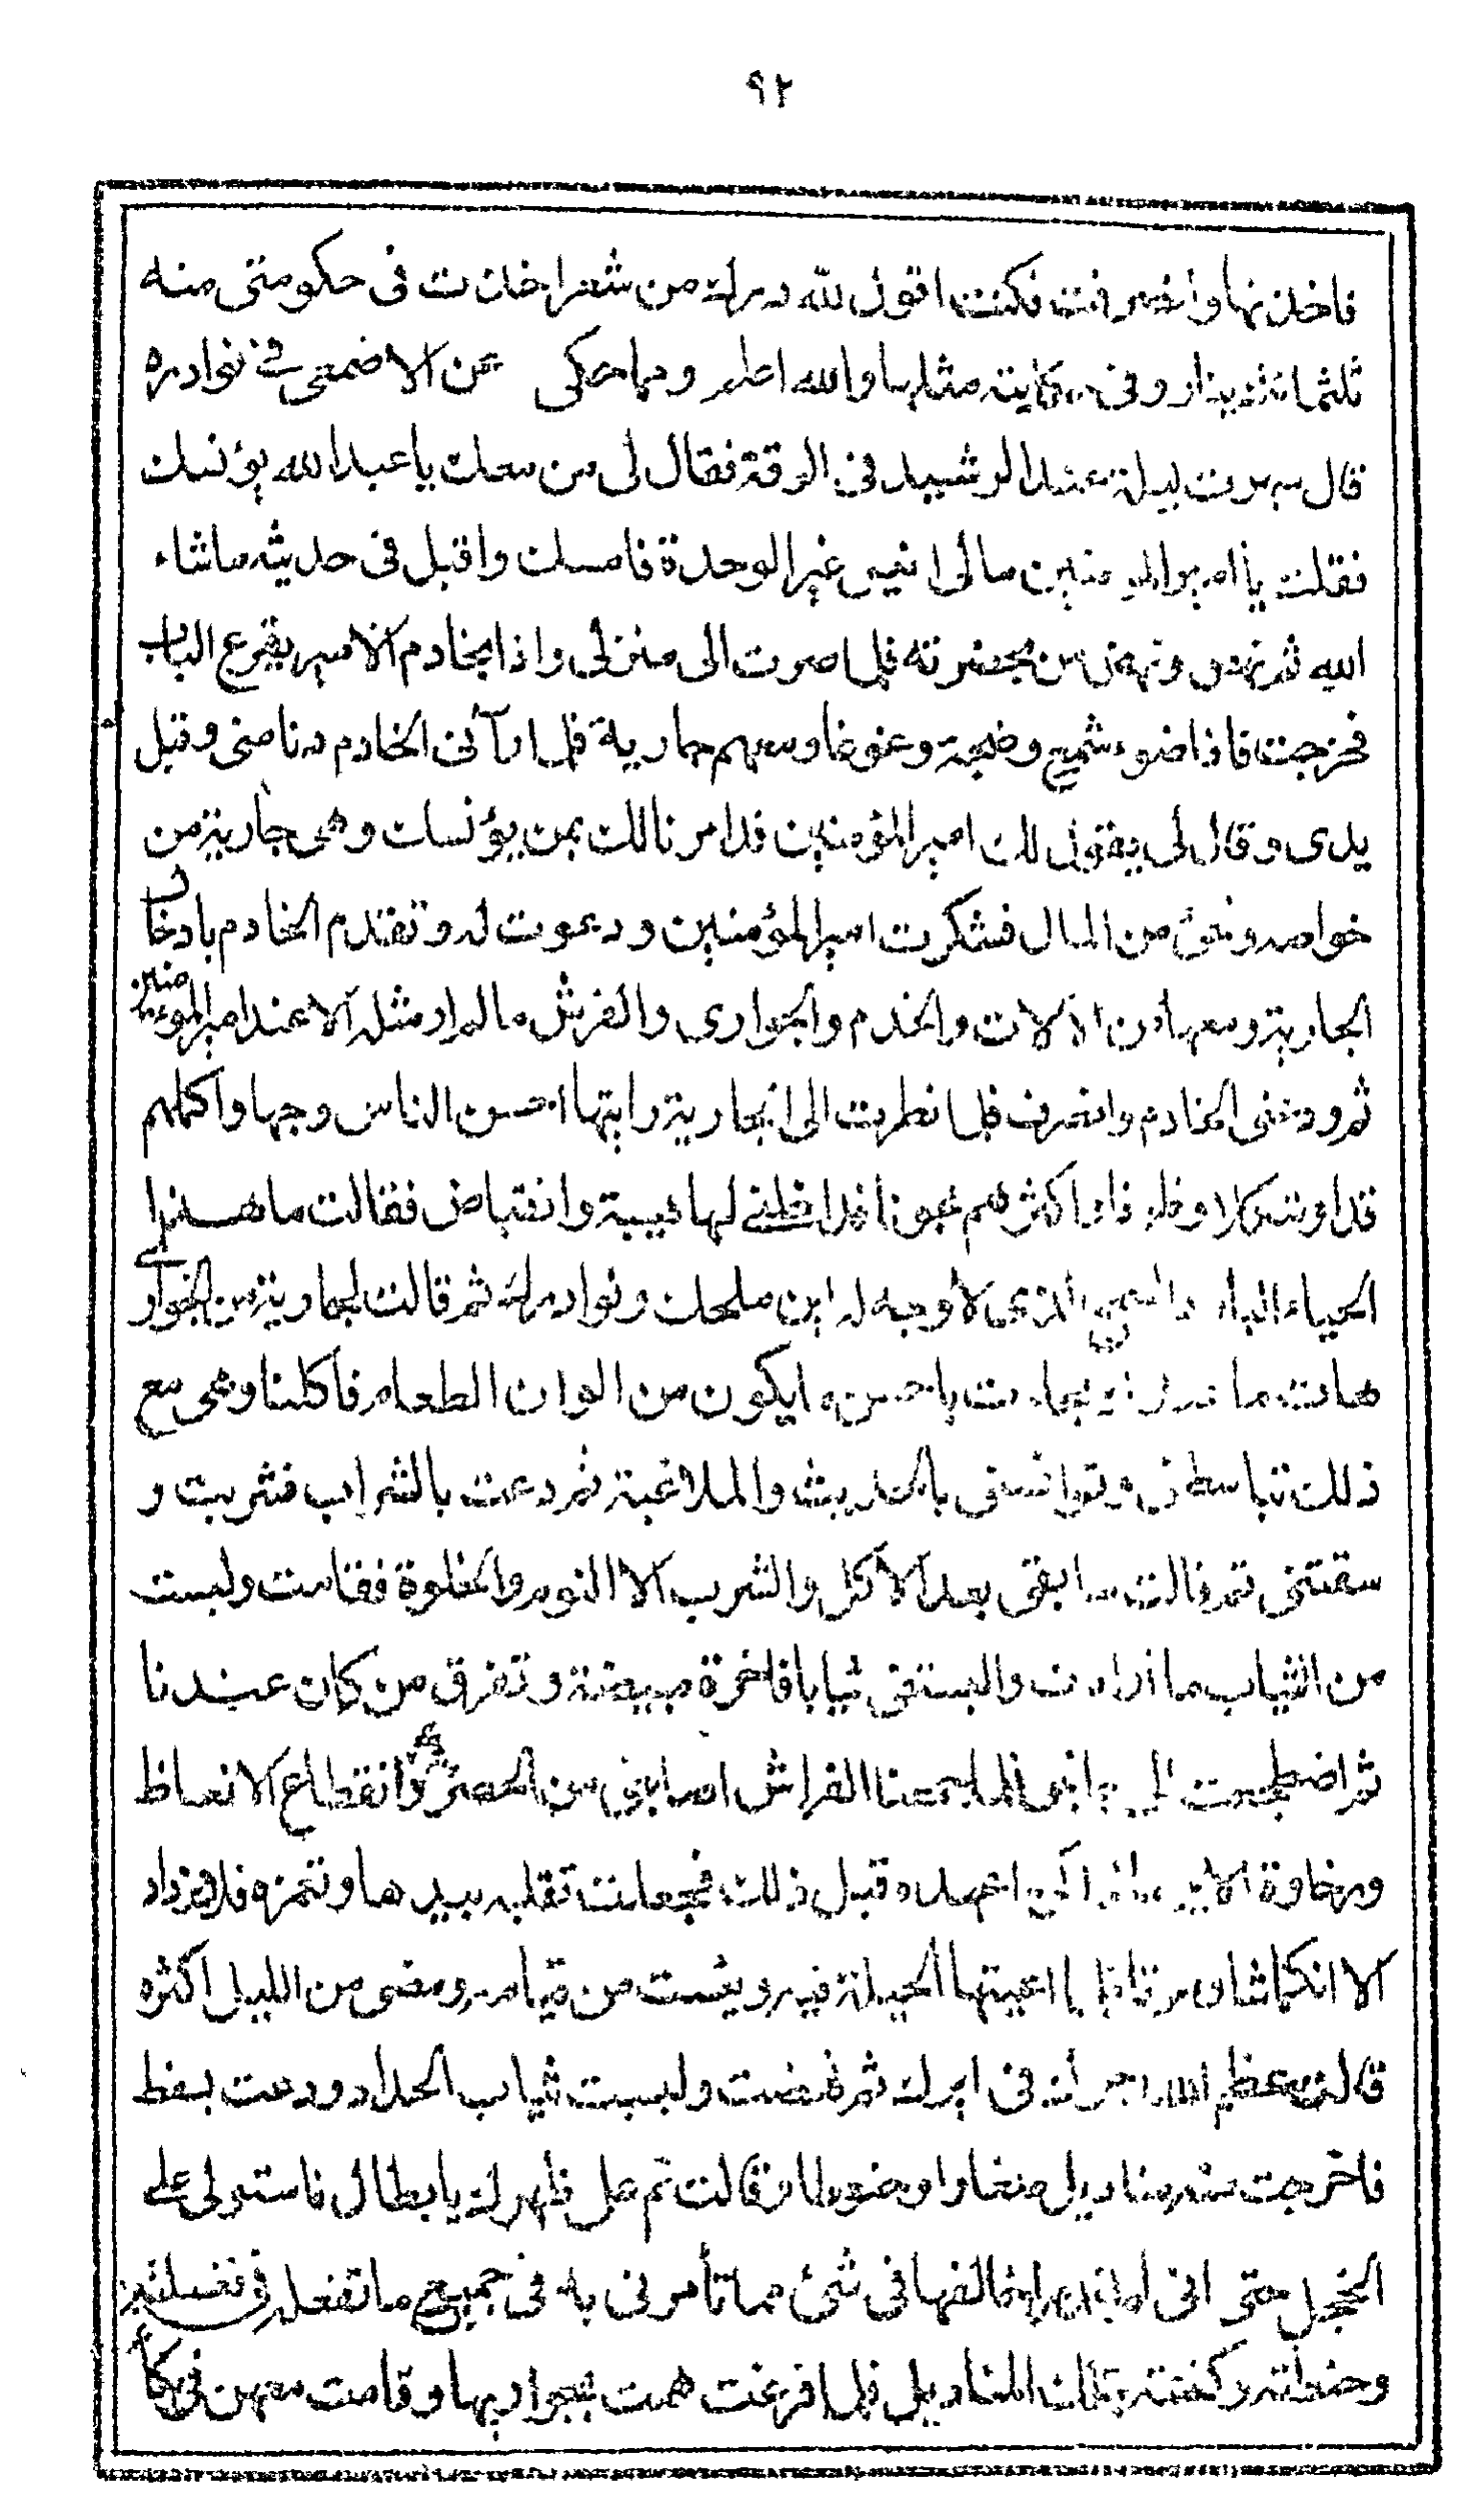 ٩٢
فاخذتها وانصرفت فكنت اقول لله درك من شعر اخذت فى حكومتى منه
ثلثمائة دينار وفى حكاية مثلها والله اعلم ومما حكى عن الاصمعى فى نوادره
قال سهرت ليلة عند الرشيد فى الرقة فقال لى من معك يا عبد الله يؤنسك
فقلت يا امير المؤمنين مالى انيس غير الوحدة فامسك واقبل فى حديثه ماشاء
الله ثم نهض ونهض من بحضرته فلما صرت الى منزلى واذا بخادم الامير يقرع الباب
فخرجت فاذا ضوء شمع وضجة وغوغا ومعهم جارية فلما رآنى الخادم دنا منى وقبل
يدى وقال لى يقول لك امير المؤمنين قد امرنا لك بمن يؤنسك وهى جارية من
خواصه وشئ من المال فشكرت امير المؤمنين ودعوت له وتقدم الخادم بادخال
الجارية ومعها من الآلات والخدم والجوارى والفرش مالم ار مثله الا عند امير المؤمنين
ثم ودعنى الخادم وانصرف فلما نظرت الى الجارية رايتها احسن الناس وجها واكملهم
قدا وشكلا وظرفا واكثرهم مجونا فداخلنى لها هيبة وانقباض فقالت ما هذا
الحياء البارد الذى لا وجه له اين ملحك ونوادرك ثم قالت لجارية من الجوارى
هات ما فجاءت باحسن ما يكون من الوان الطعام فاكلنا وهى مع
ذلك تباسطنى وتوانسنى بالحديث والملاعبة ثم دعت بالشراب فشربت و
سقتنى ثم قالت ما بقى بعد الاكل والشرب الا النوم والخلوة فقامت ولبست
من الثياب ما ارادت والبستنى ثيابا فاخرة مبيضة وتفرق من كان عندنا
ثم اضطجعت الى جانبى فلما جمعنا الفراش اصابنى من الحصر وانقطاع الانعاظ
ورخاوة الاير ما لم اكن اعهده قبل ذلك فجعلت تقلبه بيدها وتغمزه فلا يزداد
الا انكماشا ورقادا فلما اعيتها الحيلة فيه ويئست من قيامه ومضى من الليل اكثره
قالت عظم الله اجرك فى ايرك ثم نهضت ولبست ثياب الحداد ودعت بسفط
فاخرجت منه مناديل صغارا وحنوطا وقالت نم على ظهرك يا بطال فاستولى على
الخجل حتى انى لم اقدر اخالفها فى شئ مما تأمرنى به فى جميع ما تفعله فغسلته
وحنطته وكفنته بتلك المناديل فلما فرغت همت بجواريها وقامت معهن فى بكاء